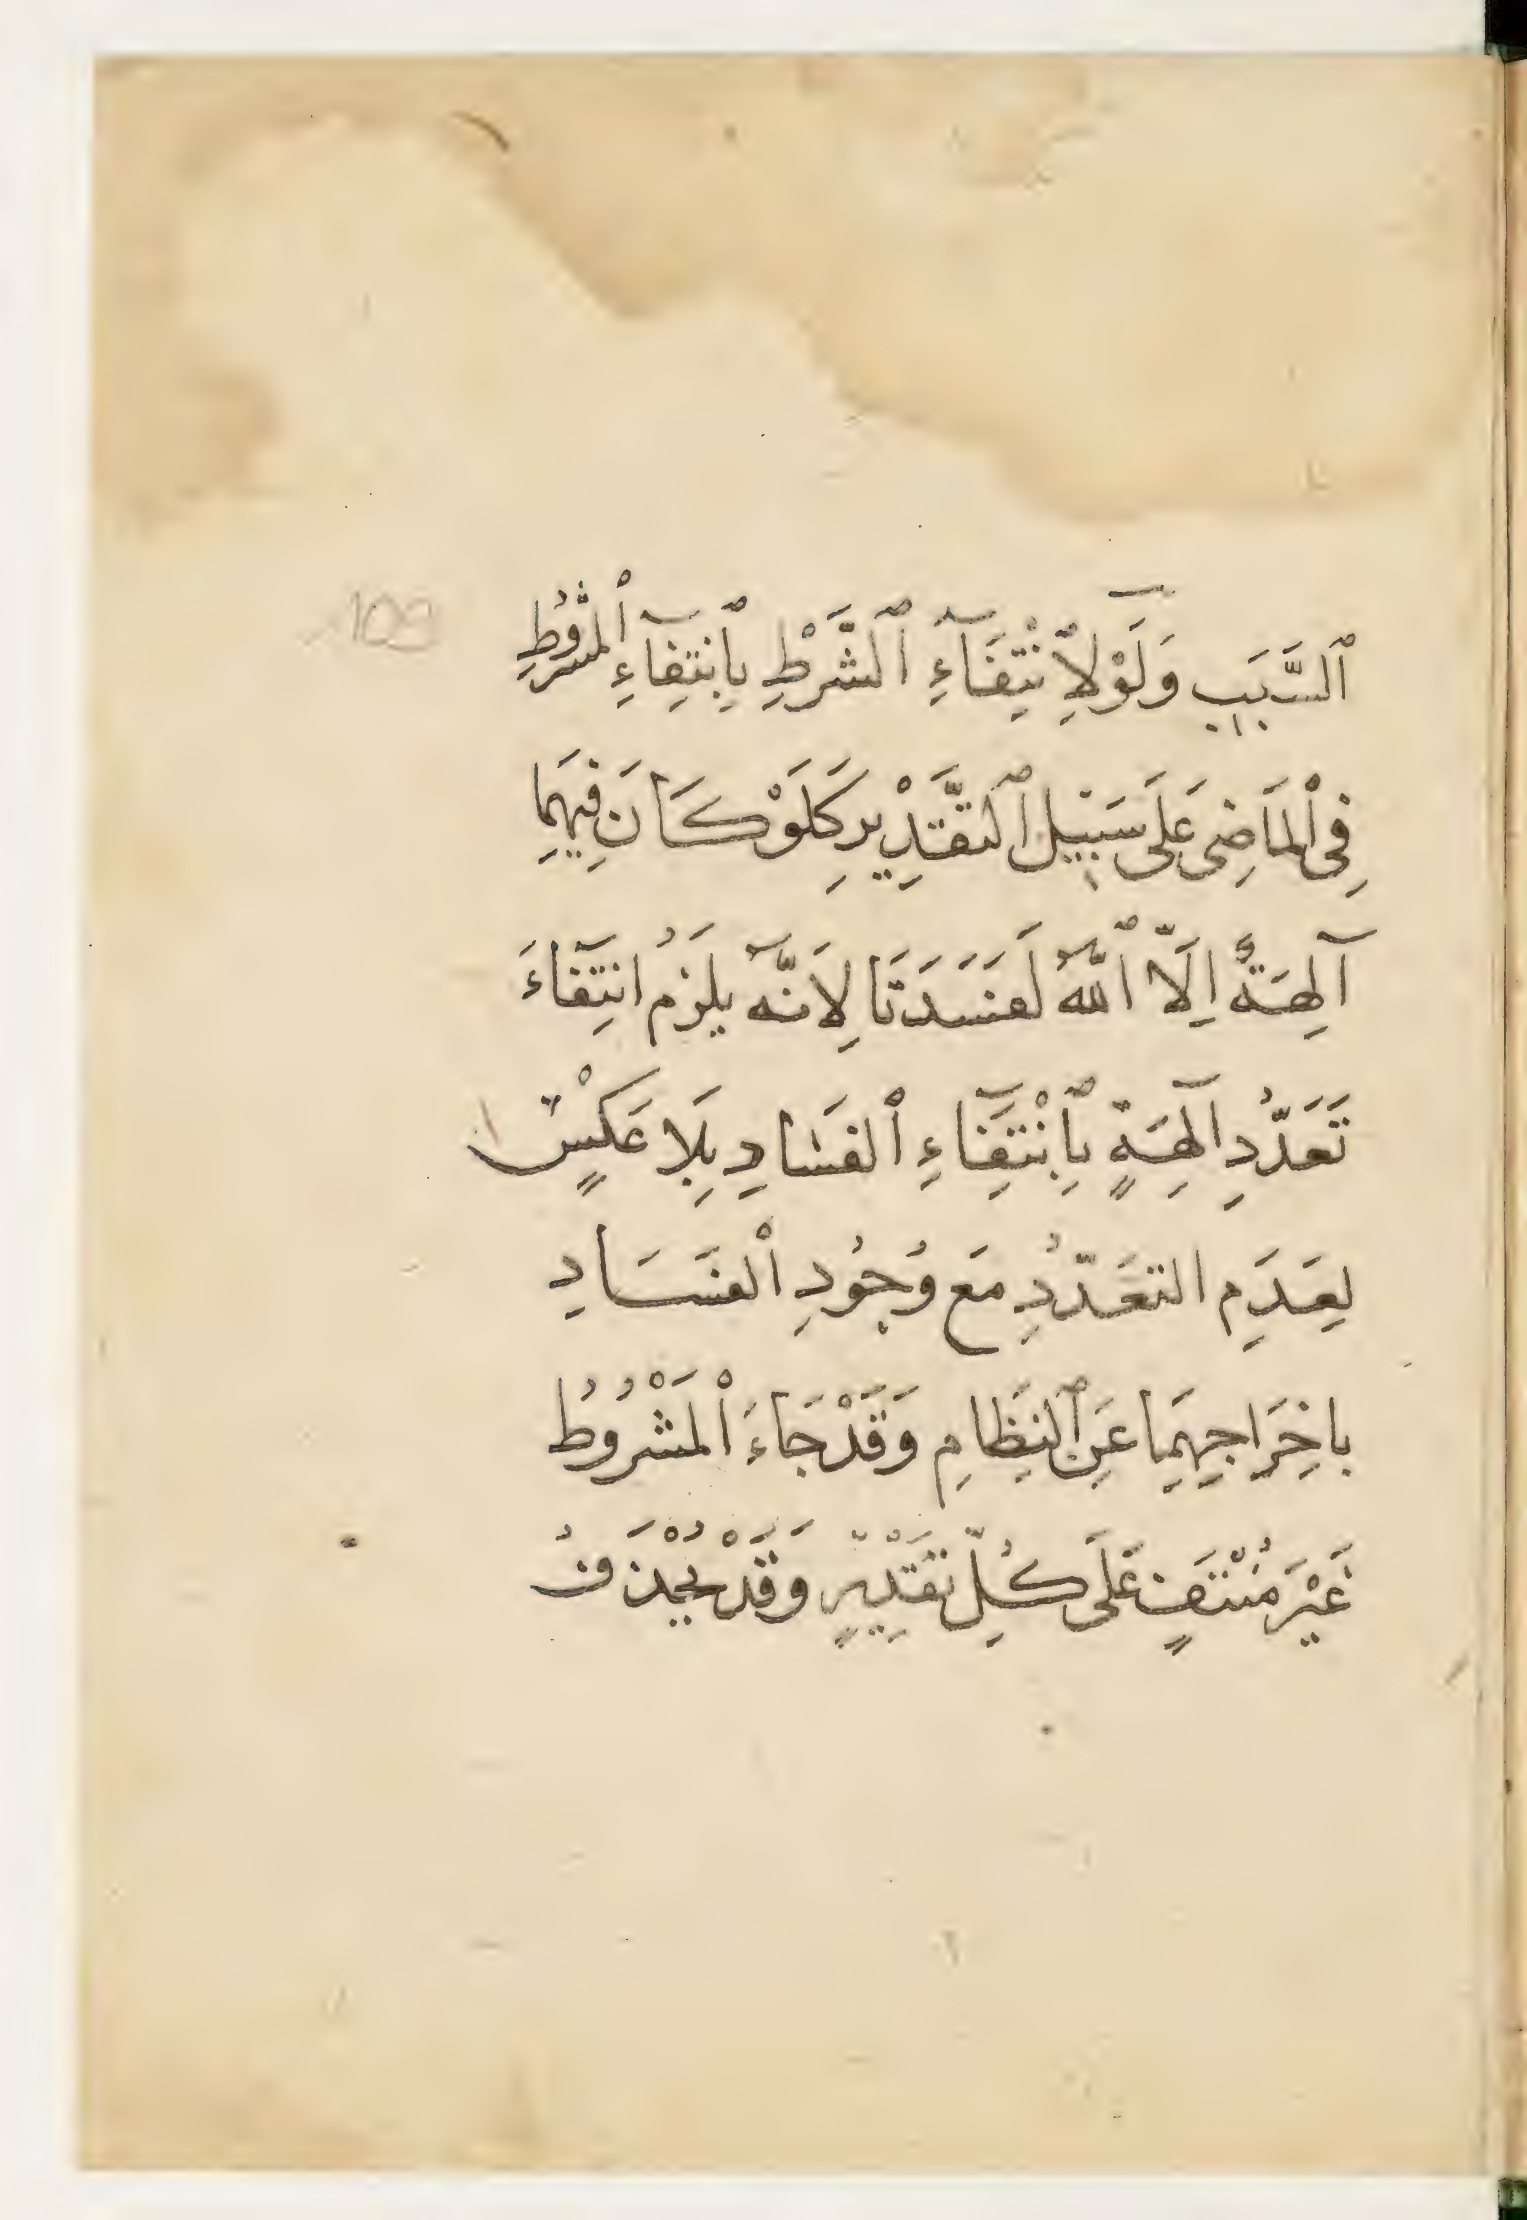 ٱلسَّبَبِ وَلَوْ لِاِنْتِفَآءِ ٱلشَّرْطِ بِٱنتِفَآءِ ٱلْمَشْرُوطِ
فِى ٱلْمَاضِى عَلَى سَبِيْلِ ٱلتَّقْدِيْرِ كَلَوْ كَانَ فِيهِمَا
آلِهَةٌ اِلَّا ٱللّٰهُ لَفَسَدَتَا لِاَنَّهُ يَلْزَمُ انتِفَآءَ
تَعَدُّدِ آلِهَةٍ بِٱنْتِفَآءِ ٱلفَسَادِ بِلَا عَكْسٍ
لِعَدَمِ التَّعَدُّدِ مَع وُجُودِ ٱلْفَسَادِ
بِاخِرَاجِهِمَا عَنِ ٱلنِّظَامِ وَقَدْ جَاءَ ٱلْمَشْرُوطُ
غَيْرَ مُنْتَفٍ عَلَى كُلِّ تَقْدِيْرٍ وَقَدْ يُحْذَفُ